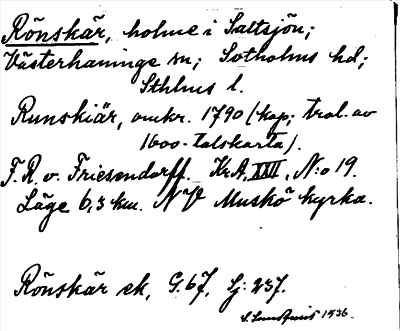 Rönskär, holme i Saltsjön;
Västerhaninge sn; Sotholms hd;
Sthlms l.
Runskiär, omkr. 1790 (kop; trol. av
1600-talskarta).
F. R. v. Friesendorff. Kr.A. XXVI, N:o 19.
Läge 6,3 km. NV Muskö kyrka.
Rönskär ek, G. 67, Lj: 237.
1936.